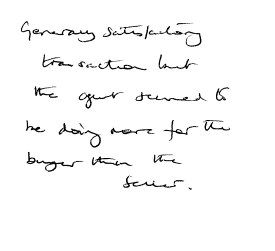 Generally satisfactory
transaction but
the agent seemed to
be doing more for the
buyer than the
seller.